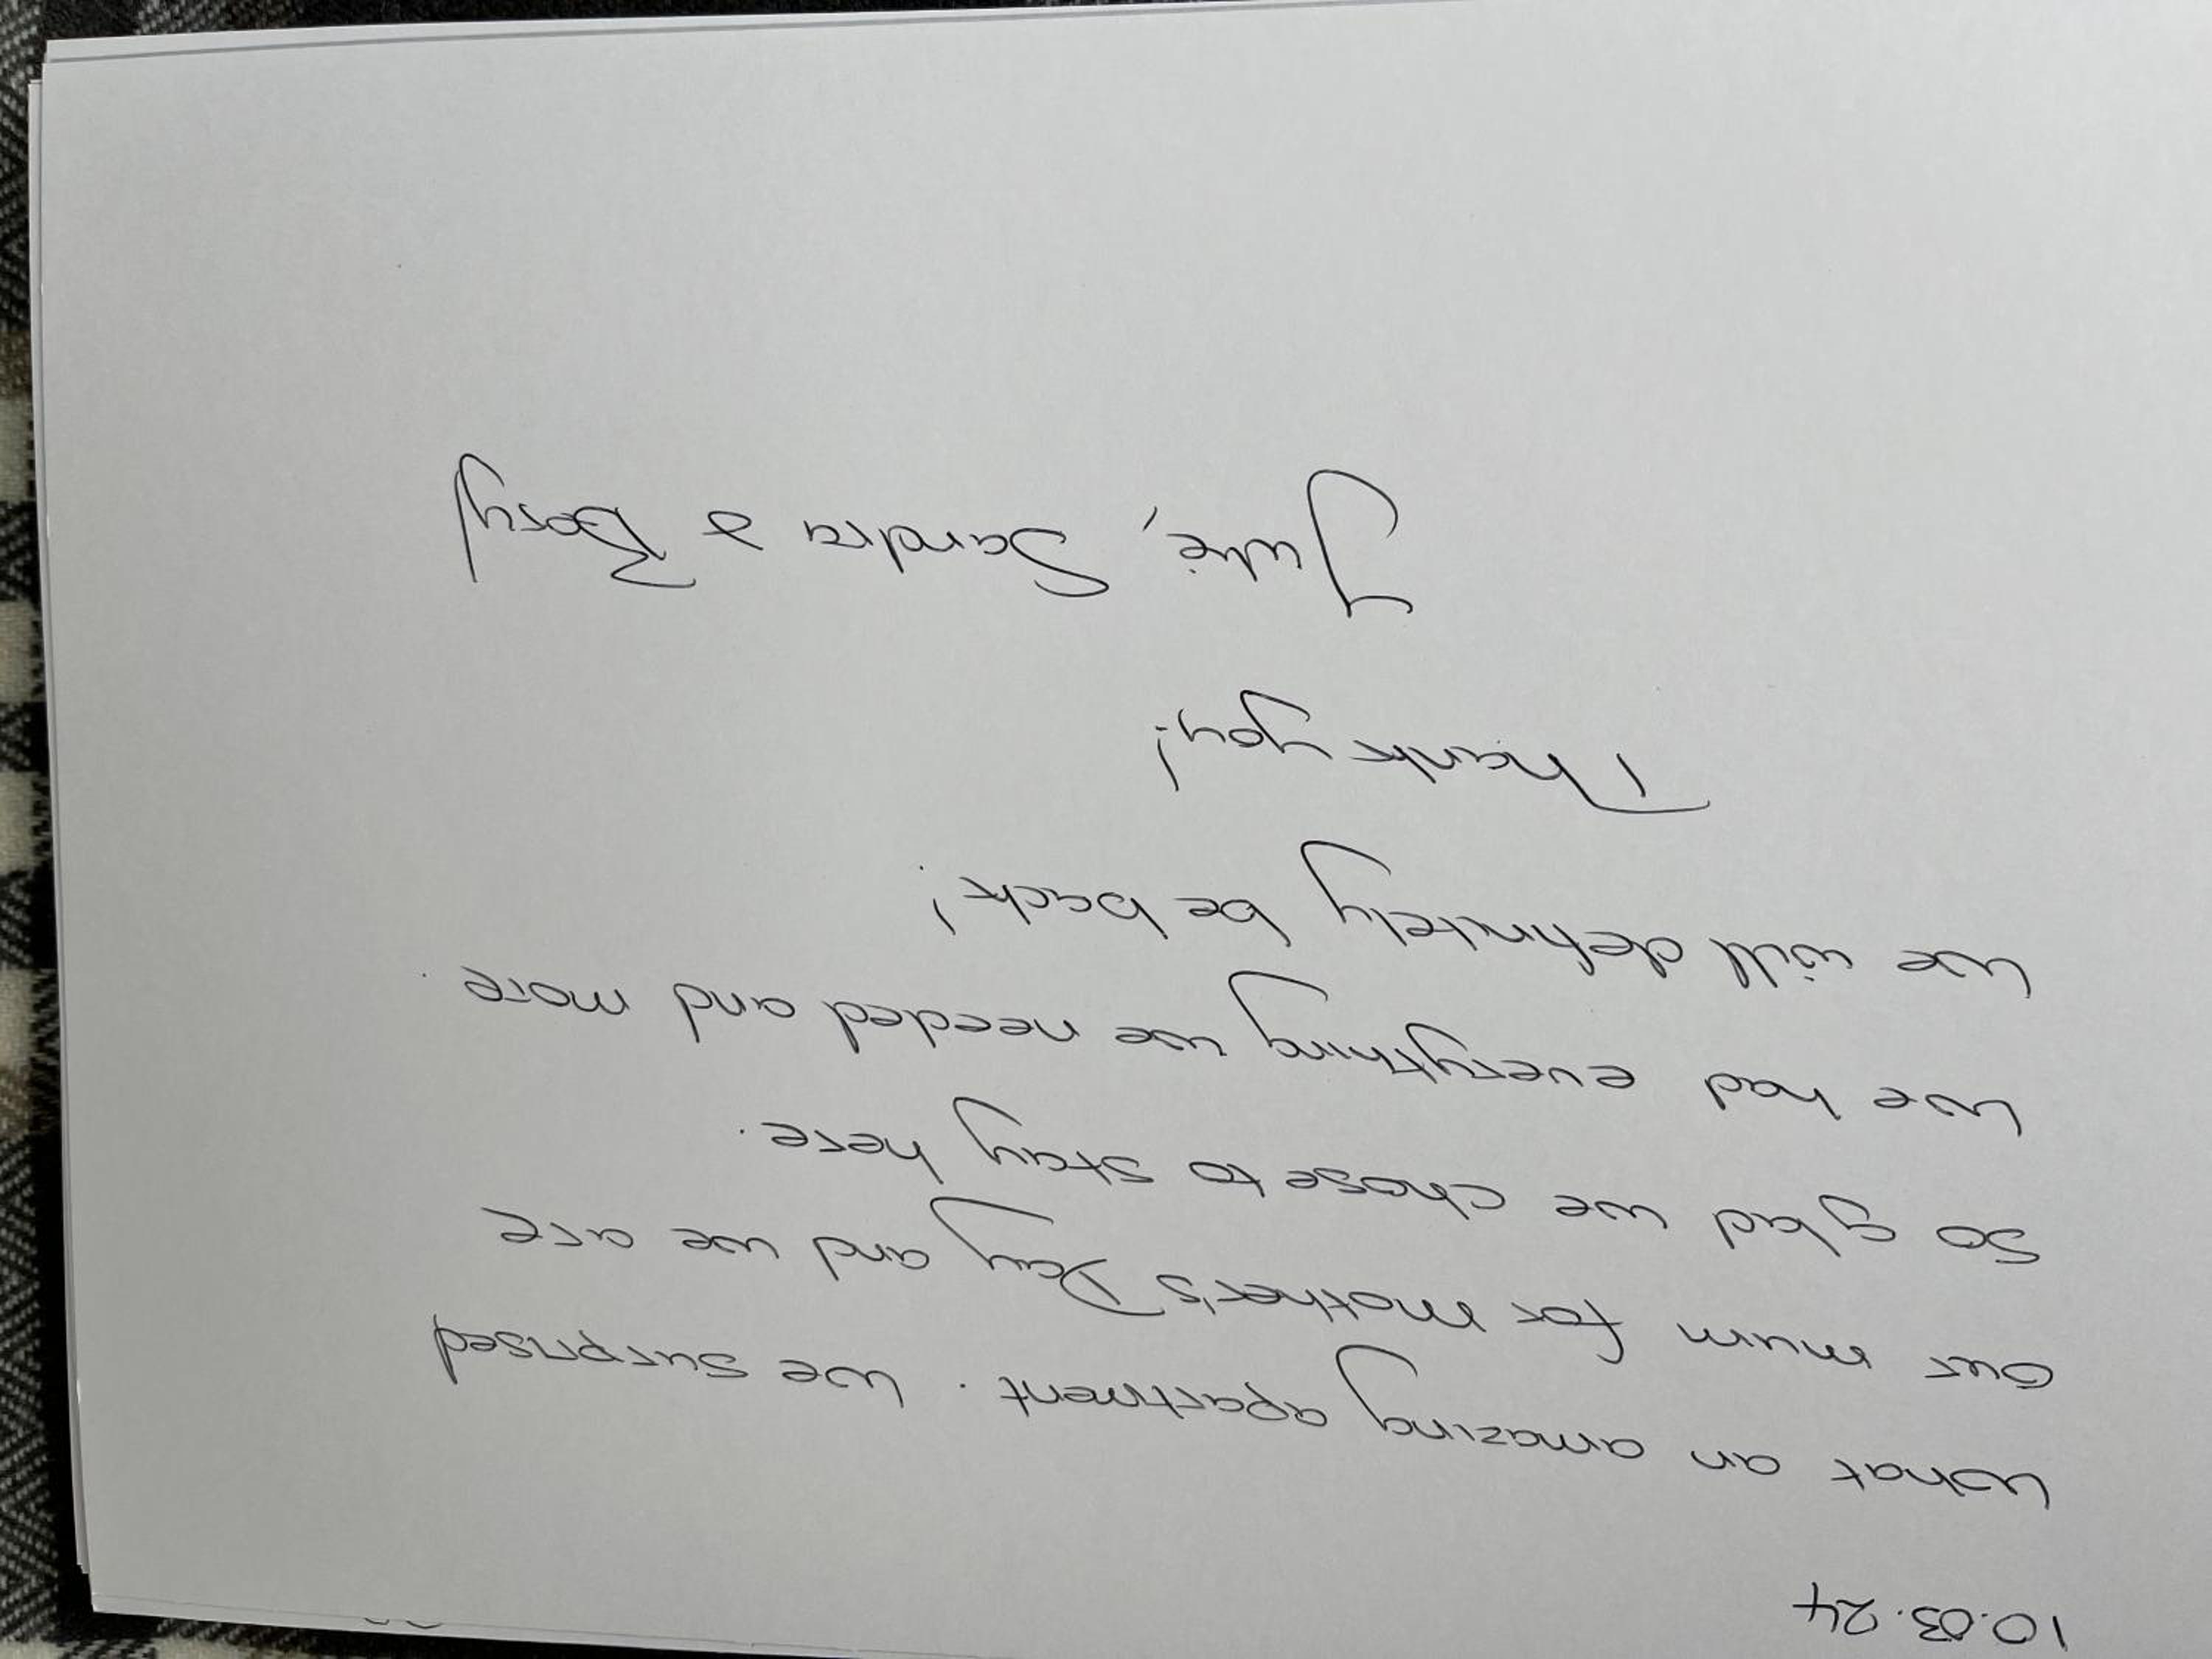 10.03.24
What an amazing apartment. We surprised
our mum for mother's Day and we are
so glad we chose to stay here.
We had everything we needed and more.
We will definitely be back!
Thank you!
Julie, Sandra &